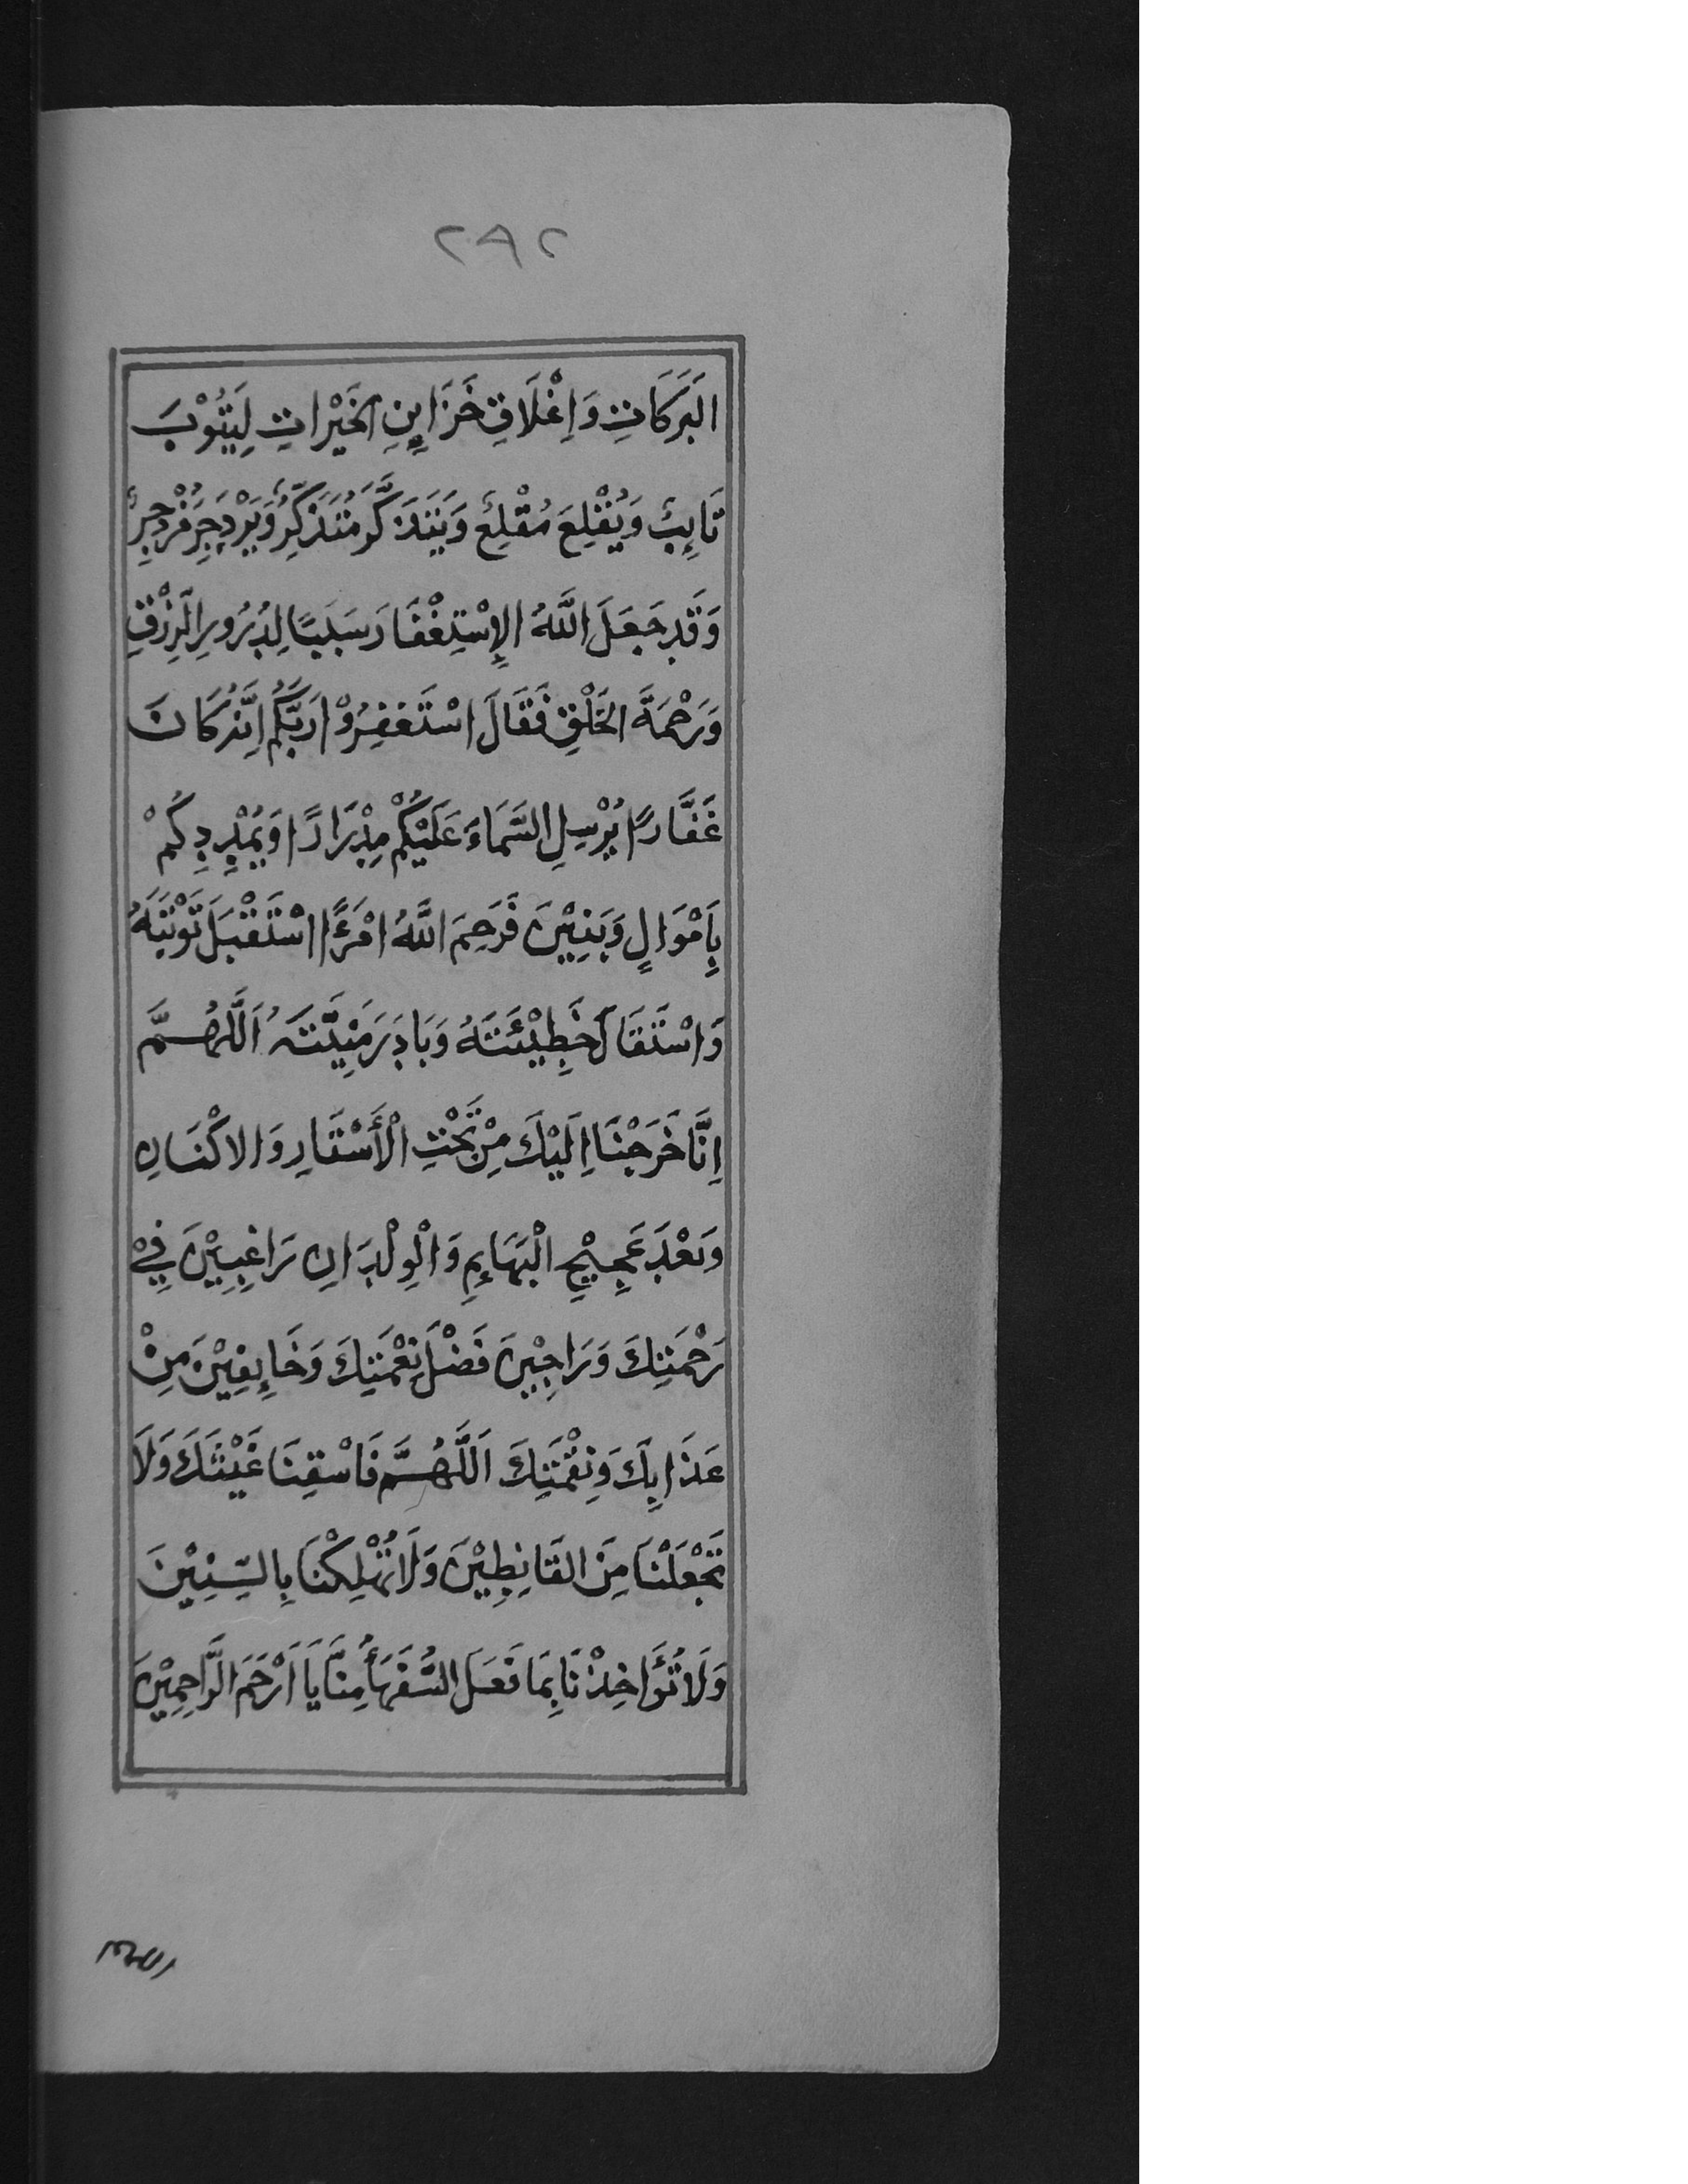 ٢٩٢
البَرَكَاتِ وَاِغْلَاقِ خَزَايِنِ الخَيْرَاتِ لِيَتُوْبَ
تَايِبٌ وَيُقْلِعَ مُقْلِعٌ وَيَتَذَكَّرَ مُتَذَكِّرٌ وَيَزْدَجِرَ مُزْدَجِرٌ
وَقَدْ جَعَلَ اللَّهُ الإِسْتِغْفَارَ سَبَبًا لِدُرُورِ الرِّزْقِ
وَرَحْمَةَ الخَلْقِ فَقَالَ اسْتَغْفِرُوْا رَبَّكُمْ اِنَّهُ كَانَ
غَفَّارًا يُرْسِلِ السَّمَاءَ عَلَيْكُمْ مِدْرَارًا وَيُمْدِدِكُمْ
بِاَمْوَالٍ وَبَنِيْنَ فَرَحِمَ اللَّهُ امْرَءًا اسْتَقْبَلَ تَوْبَتَهُ
وَاسْتَقَالَ خَطِيْئَتَهُ وَبَادَرَ مَنِيَّتَهُ اَللَّهُمَّ
اِنَّا خَرَجْنَا اِلَيْكَ مِنْ تَحْتِ الْأَسْتَارِ وَالاكْنَانِ
وَبَعْدَ عَجِيْجِ الْبَهَايِمِ وَالْوِلْدَانِ رَاغِبِيْنَ فِيْ
رَحْمَتِكَ وَرَاجِيْنَ فَضْلَ نِعْمَتِكَ وَخَايِفِيْنَ مِنْ
عَذَابِكَ وَنِقْمَتِكَ اَللَّهُمَّ فَاسْقِنَا غَيْثَكَ وَلَا
تَجْعَلْنَا مِنَ القَانِطِيْنَ وَلَا تُهْلِكْنَا بِالسِّنِيْنَ
وَلَا تُؤَاخِذْنَا بِمَا فَعَلَ السُّفَهَأُ مِنَّا يَا اَرْحَمَ الرَّاحِمِيْنَ